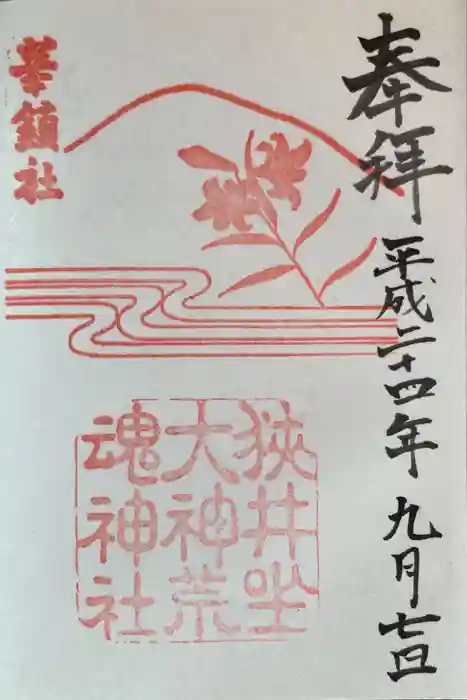 奉拝
平成二十四年 九月七日
華鎮社
狭井坐
大神荒
魂神社